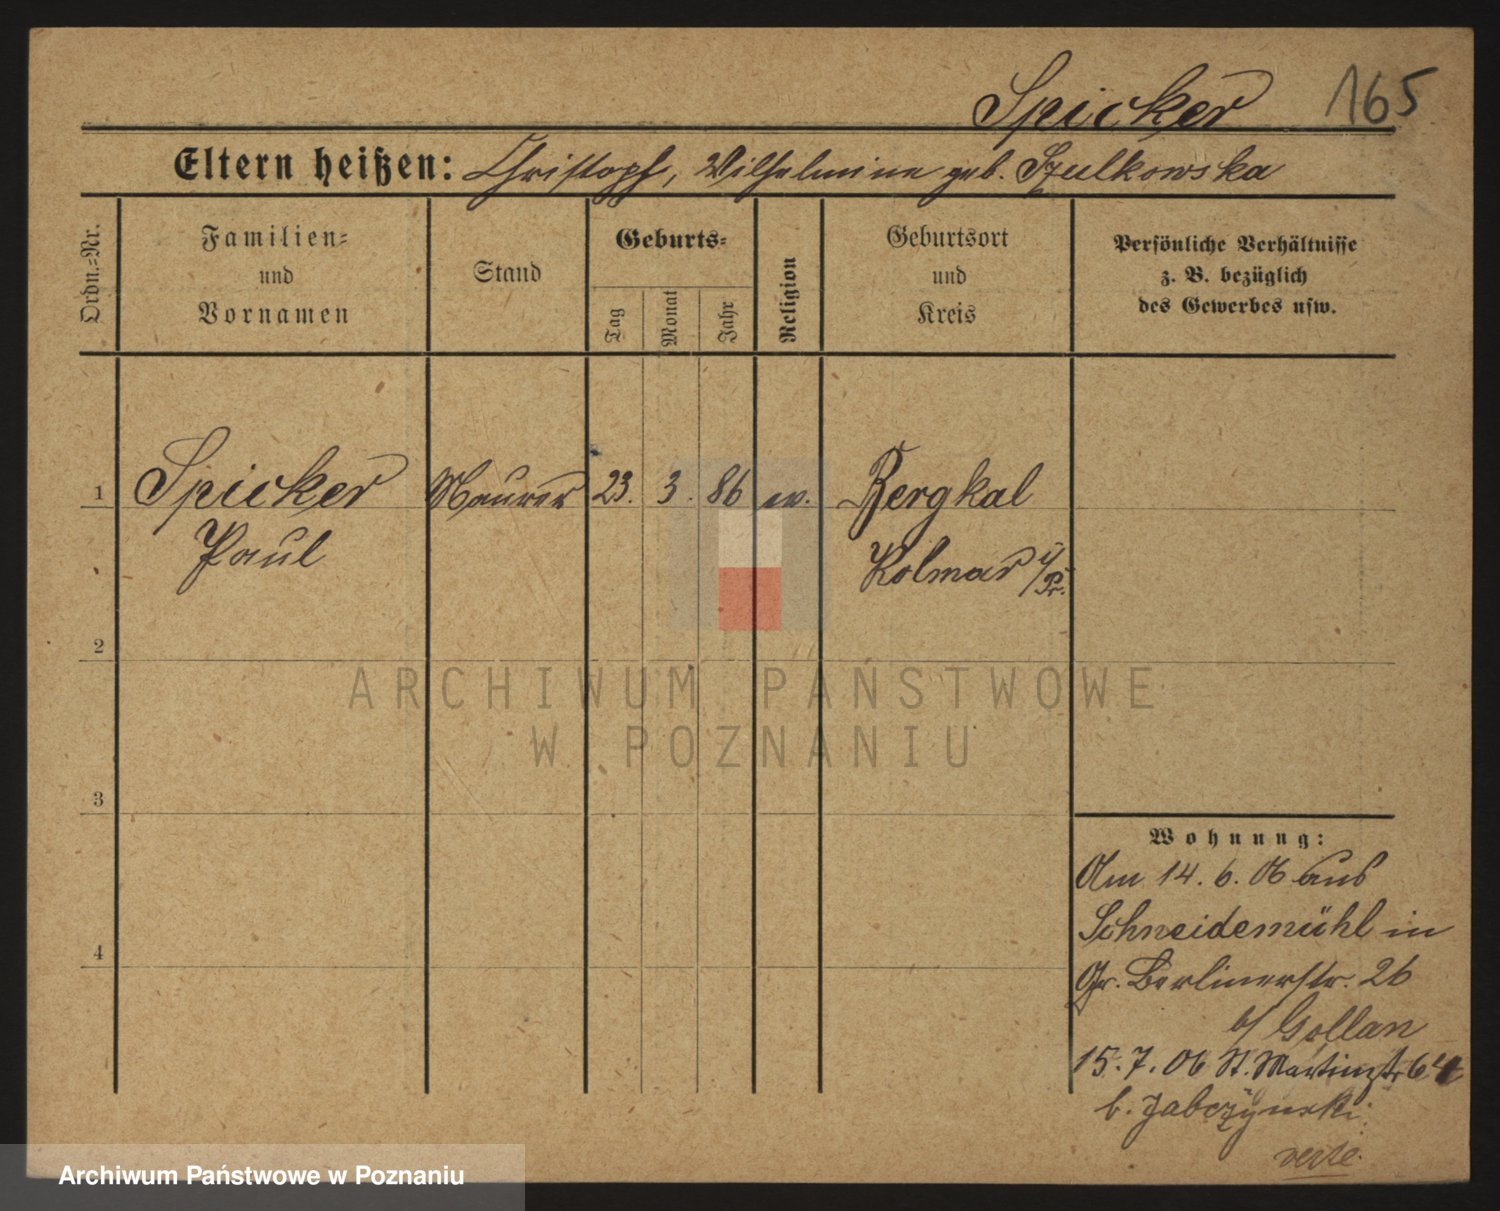 Spicker 165
Eltern heißen: Christoph, Wilhelmine geb. Szulkowska
Ordn.-Nr.
Familien-
und
Vornamen
Stand
Geburts-
Tag
Monat
Jahr
Religion
Geburtsort
und
Kreis
Persönliche Verhältnisse
z. B. bezüglich
des Gewerbes usw.
1 Spicker Maurer 23. 3. 86 ev. Bergkal
Paul Kolmar i/Pr.
2
3
4
Wohnung:
Am 14. 6. 06 aus
Schneidemühl in
Gr. Berlinerstr. 26
b/ Gollan
15. 7. 06 St. Martinstr 64
b. Jabczynski
verte.
ARCHIWUM PAŃSTWOWE
W POZNANIU
Archiwum Państwowe w Poznaniu